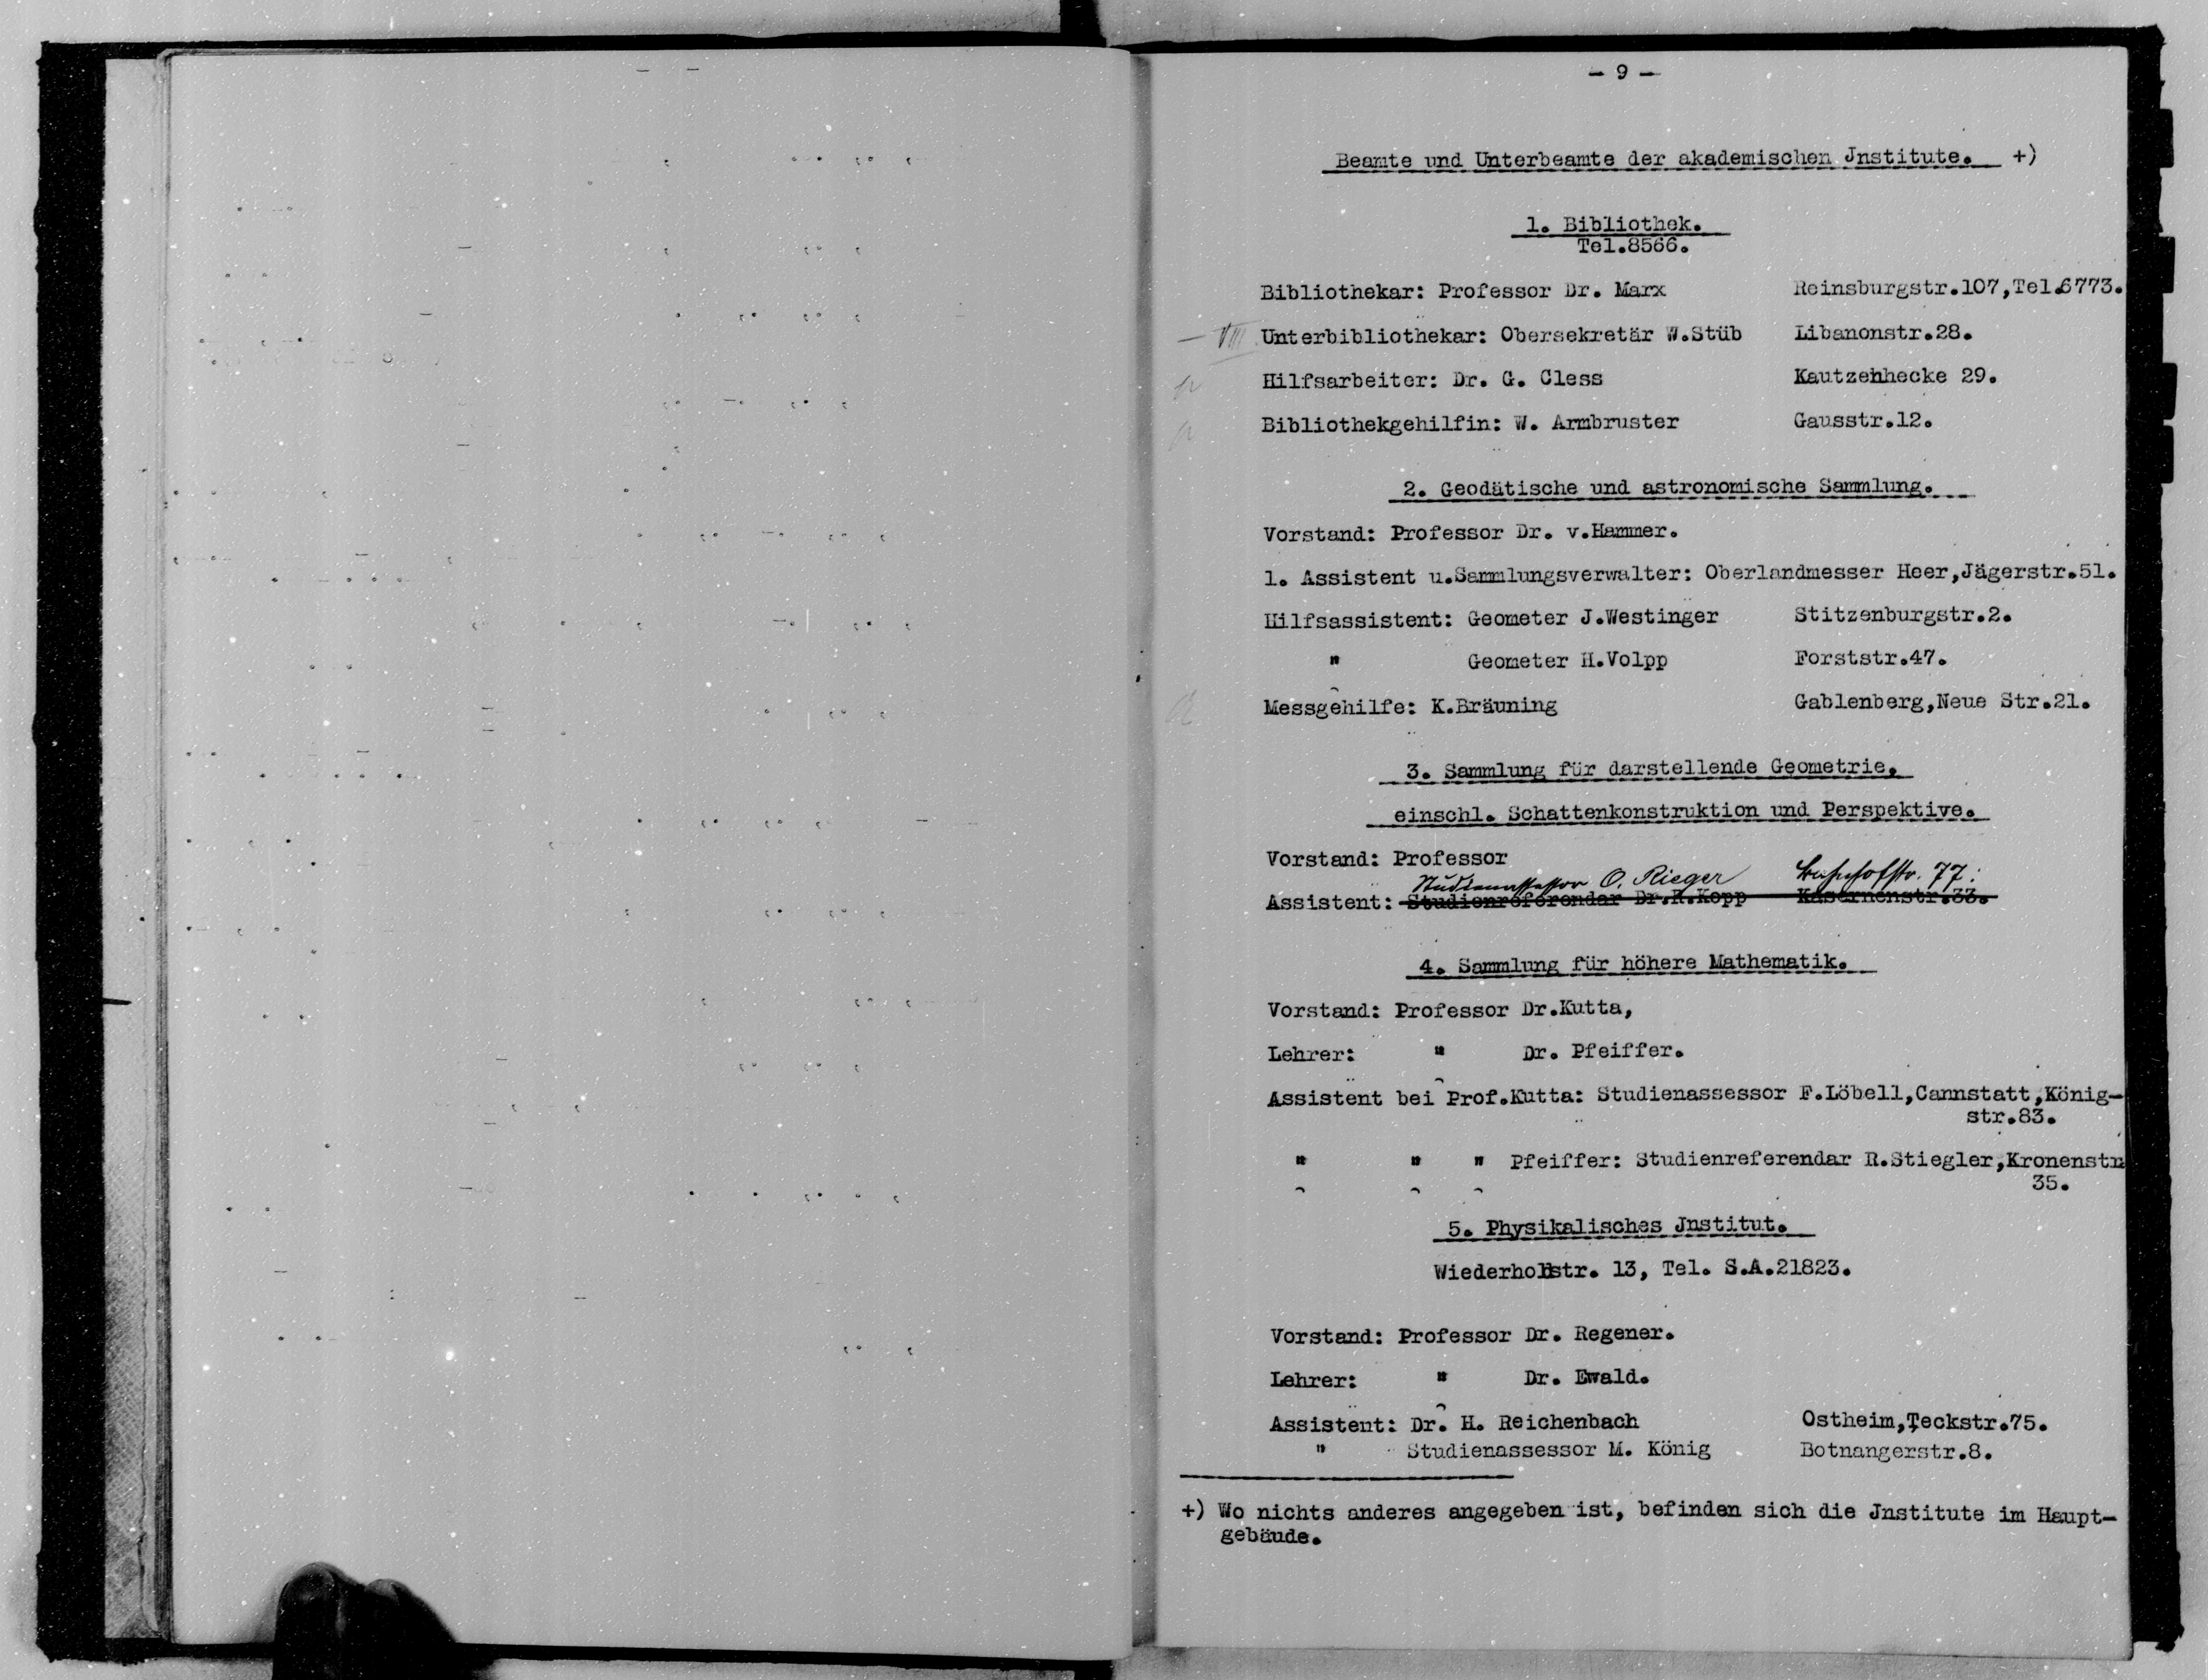 - 9 -
Beamte und Unterbeamte der akademischen Jnstitute. +)
1. Bibliothek.
Tel.8566.
Bibliothekar: Professor Dr. Marx Reinsburgstr.107,Tel.6773.
VIII Unterbibliothekar: Obersekretär W.Stüb Libanonstr.28.
Hilfsarbeiter: Dr. G. Cless Kautzenhecke 29.
Bibliothekgehilfin: W. Armbruster Gausstr.12.
2. Geodätische und astronomische Sammlung.
Vorstand: Professor Dr. v.Hammer.
1. Assistent u.Sammlungsverwalter: Oberlandmesser Heer,Jägerstr.51.
Hilfsassistent: Geometer J.Westinger Stitzenburgstr.2.
" Geometer H.Volpp Forststr.47.
Messgehilfe: K.Bräuning Gablenberg,Neue Str.21.
3. Sammlung für darstellende Geometrie,
einschl. Schattenkonstruktion und Perspektive.
Vorstand: Professor
Studienassessor O. Rieger Bahnhofstr. 77.
Assistent: Studienreferendar Dr.R.Kopp Kasernenstr.33.
4. Sammlung für höhere Mathematik.
Vorstand: Professor Dr.Kutta,
Lehrer: " Dr. Pfeiffer.
Assistent bei Prof.Kutta: Studienassessor F.Löbell,Cannstatt,König-
str.83.
" " " Pfeiffer: Studienreferendar R.Stiegler,Kronenstr
35.
5. Physikalisches Jnstitut.
Wiederholdstr. 13, Tel. S.A.21823.
Vorstand: Professor Dr. Regener.
Lehrer: " Dr. Ewald.
Assistent: Dr. H. Reichenbach Ostheim,Teckstr.75.
" Studienassessor M. König Botnangerstr.8.
+) Wo nichts anderes angegeben ist, befinden sich die Jnstitute im Haupt-
gebäude.